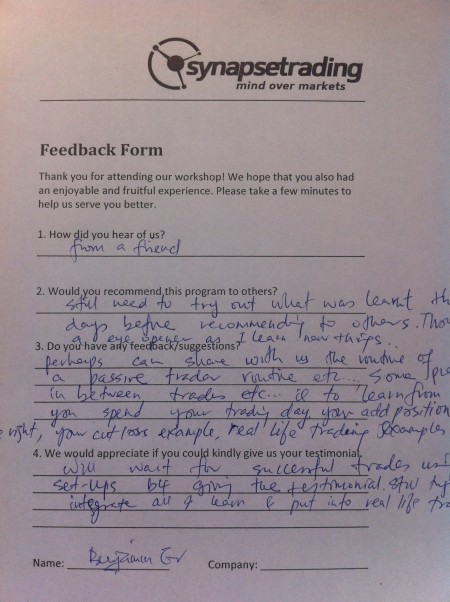 synapsetrading
mind over markets
Feedback Form
Thank you for attending our workshop! We hope that you also had
an enjoyable and fruitful experience. Please take a few minutes to
help us serve you better.
1. How did you hear of us?
from a friend
2. Would you recommend this program to others?
still need to try out what was learnt th
days before recommending to others. Thou
a eye opener as I learn new things..
3. Do you have any feedback/suggestions?
perhaps can share with us the routine of
a passive trader routine etc... Some
in between trades etc... ie to learn from
you spend your trading day, your add position
right, your cut loss example, real life trading examples
4. We would appreciate if you could kindly give us your testimonial.
Will wait for successful trades
set-ups b4 giving the testimonial. Still
integrate all I learn & put into real life tra
Name: Benjamin
Company: